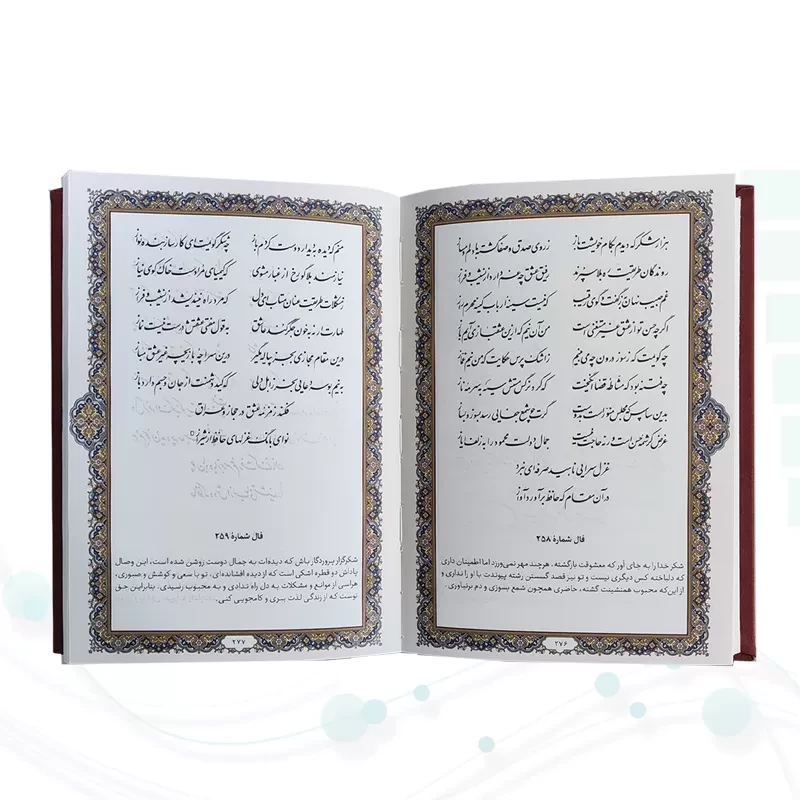 هزار شکر که دیدم به کام خویشت باز ز روی صدق و صفا گشته با دلم دمساز
روندگان طریقت ره بلا سپرند رفیق عشق چه غم دارد از نشیب و فراز
غم حبیب نهان به ز گفت و گوی رقیب که نیست سینهٔ ارباب کینه محرم راز
اگرچه حسن تو از عشق غیر مستغنی است من آن نیم که ازین عشقبازی آیم باز
چه گویمت که ز سوز درون چه می‌بینم ز اشک پرس حکایت که من نیم غماز
چه فتنه بود که مشاطهٔ قضا انگیخت که کرد نرگس مستش سیه به سرمهٔ ناز
بدین سپاس که مجلس منور است به دوست گرت چو شمع جفایی رسد بسوز و بساز
غرض کرشمهٔ حسن است ورنه حاجت نیست جمال دولت محمود را به زلف ایاز
غزل سرایی ناهید صرفه‌ای نبرد
در آن مقام که حافظ برآورد آواز
فال شمارهٔ ۲۵۸
شکر خدا را به جای آور که معشوقت بازگشته. هرچند مهر نمی‌ورزد اما اطمینان داری
که دلباخته کس دیگری نیست و تو نیز قصد گسستن رشته پیوندت با او را نداری و
از این‌که محبوب همنشینت گشته، حاضری همچون شمع بسوزی و دم برنیاوری.
۲۷۶
منم که دیده به دیدار دوست کردم باز چه شکر گویمت ای کارساز بنده نواز
نیازمند بلا گو رخ از غبار مشوی که کیمیای مراد است خاک کوی نیاز
ز مشکلات طریقت عنان متاب ای دل که مرد راه نیندیشد از نشیب و فراز
طهارت ار نه به خون جگر کند عاشق به قول مفتی عشقش درست نیست نماز
درین مقام مجازی بجز پیاله مگیر درین سراچهٔ بازیچه غیر عشق مباز
به نیم بوسه دعایی بخر ز اهل دلی که کید دشمنت از جان و جسم دارد باز
فکند زمزمهٔ عشق در حجاز و عراق
نوای بانگ غزلهای حافظ از شیراز
فال شمارهٔ ۲۵۹
شکرگزار پروردگار باش که دیده‌ات به جمال دوست روشن شده است، این وصال
پاداش دو قطره اشکی است که از دیده افشانده‌ای، تو با سعی و کوشش و صبوری،
هراسی از موانع و مشکلات به دل راه ندادی و به محبوب رسیدی. بنابراین حق
توست که از زندگی لذت ببری و کامجویی کنی.
۲۷۷